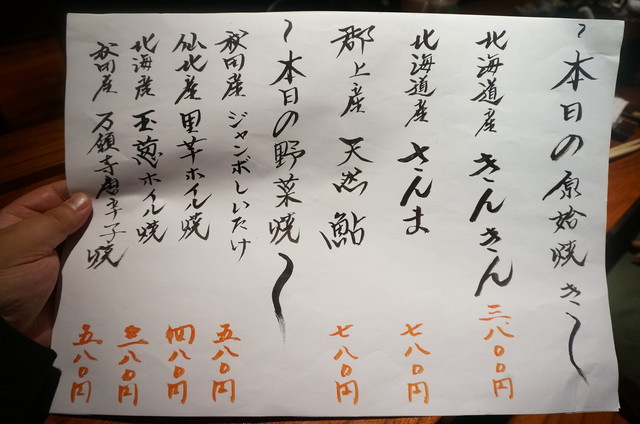 〜本日の原始焼き〜
北海道産 きんきん 三八〇〇円
北海道産 さんま 七八〇円
郡上産 天然鮎 七八〇円
〜本日の野菜焼〜
秋田産 ジャンボしいたけ 五八〇円
仙北産 里芋ホイル焼 四八〇円
北海産 玉葱ホイル焼 三八〇円
秋田産 万願寺唐辛子焼 五八〇円